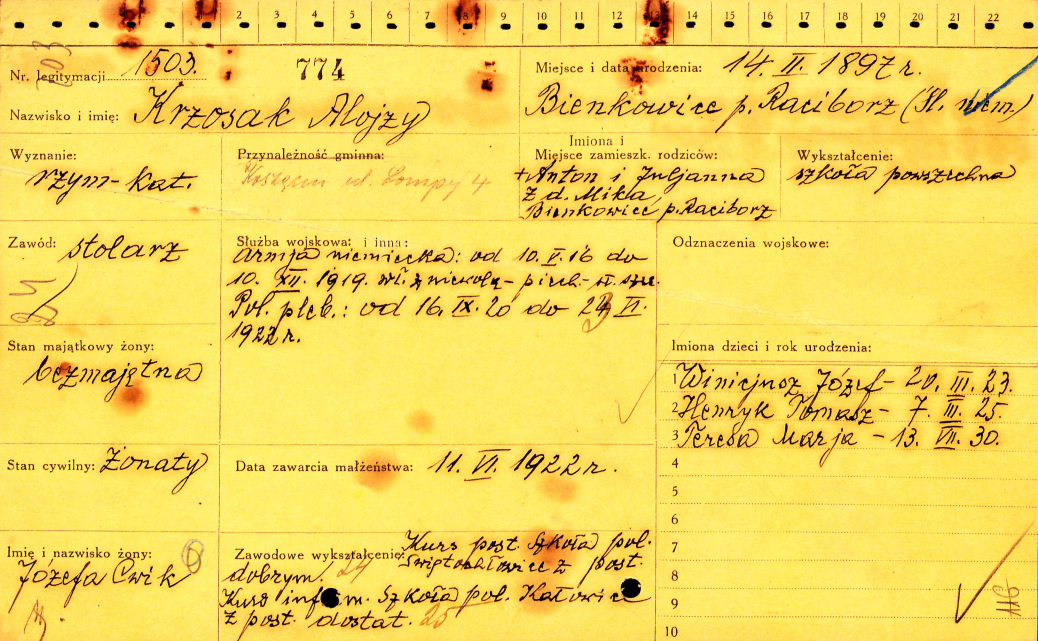 2 3 4 5 6 7 8 9 10 11 12 13 14 15 16 17 18 19 20 21 22
703
Nr. legitymacji 1503. 774
Nazwisko i imię: Krzosak Alojzy
Miejsce i data urodzenia: 14. II. 1897 r.
Bienkowice p. Raciborz (Śl. niem)
Wyznanie:
rzym-kat.
Przynależność gminna:
ul. Lompy 4
Imiona i
Miejsce zamieszk. rodziców:
+ Anton i Juljanna
z d. Mika
Bienkowice p. Raciborz
Wykształcenie:
szkoła powszechna
Zawód: stolarz
Służba wojskowa: i inna:
Armja niemiecka: od 10. V. 16 do
10. XII. 1919.
Pol. pleb.: od 16. IX. 20 do VI.
1922 r.
Odznaczenia wojskowe:
Stan majątkowy żony:
bezmajętna
Imiona dzieci i rok urodzenia:
1 Winicjusz Józef - 20. III. 23.
2 Henryk Tomasz - 7. III. 25.
3 Teresa Marja - 13. VII. 30.
4
5
6
7
8
9
10
Stan cywilny: Żonaty
Data zawarcia małżeństwa: 11. VI. 1922 r.
Imię i nazwisko żony:
Józefa Cwik
Zawodowe wykształcenie: Kurs post. Szkoła pol.
Świętochłowice z post.
dobrym.
Kurs inform. Szkoła pol. Katowice
z post. dostat. 25